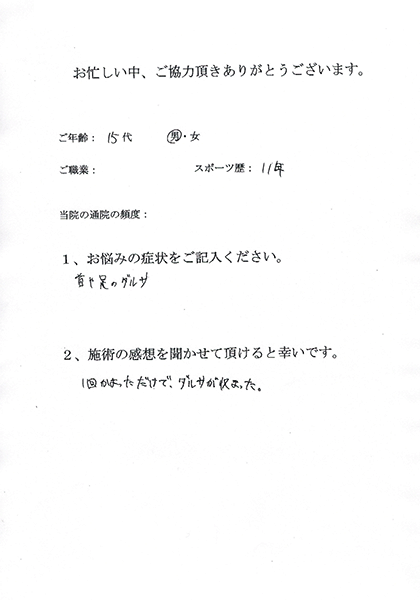 お忙しい中、ご協力頂きありがとうございます。
ご年齢： 15代 男・女
ご職業： スポーツ歴： 11年
当院の通院の頻度：
１、お悩みの症状をご記入ください。
首や足のダルサ
２、施術の感想を聞かせて頂けると幸いです。
1回かよっただけで、ダルサが収まった。